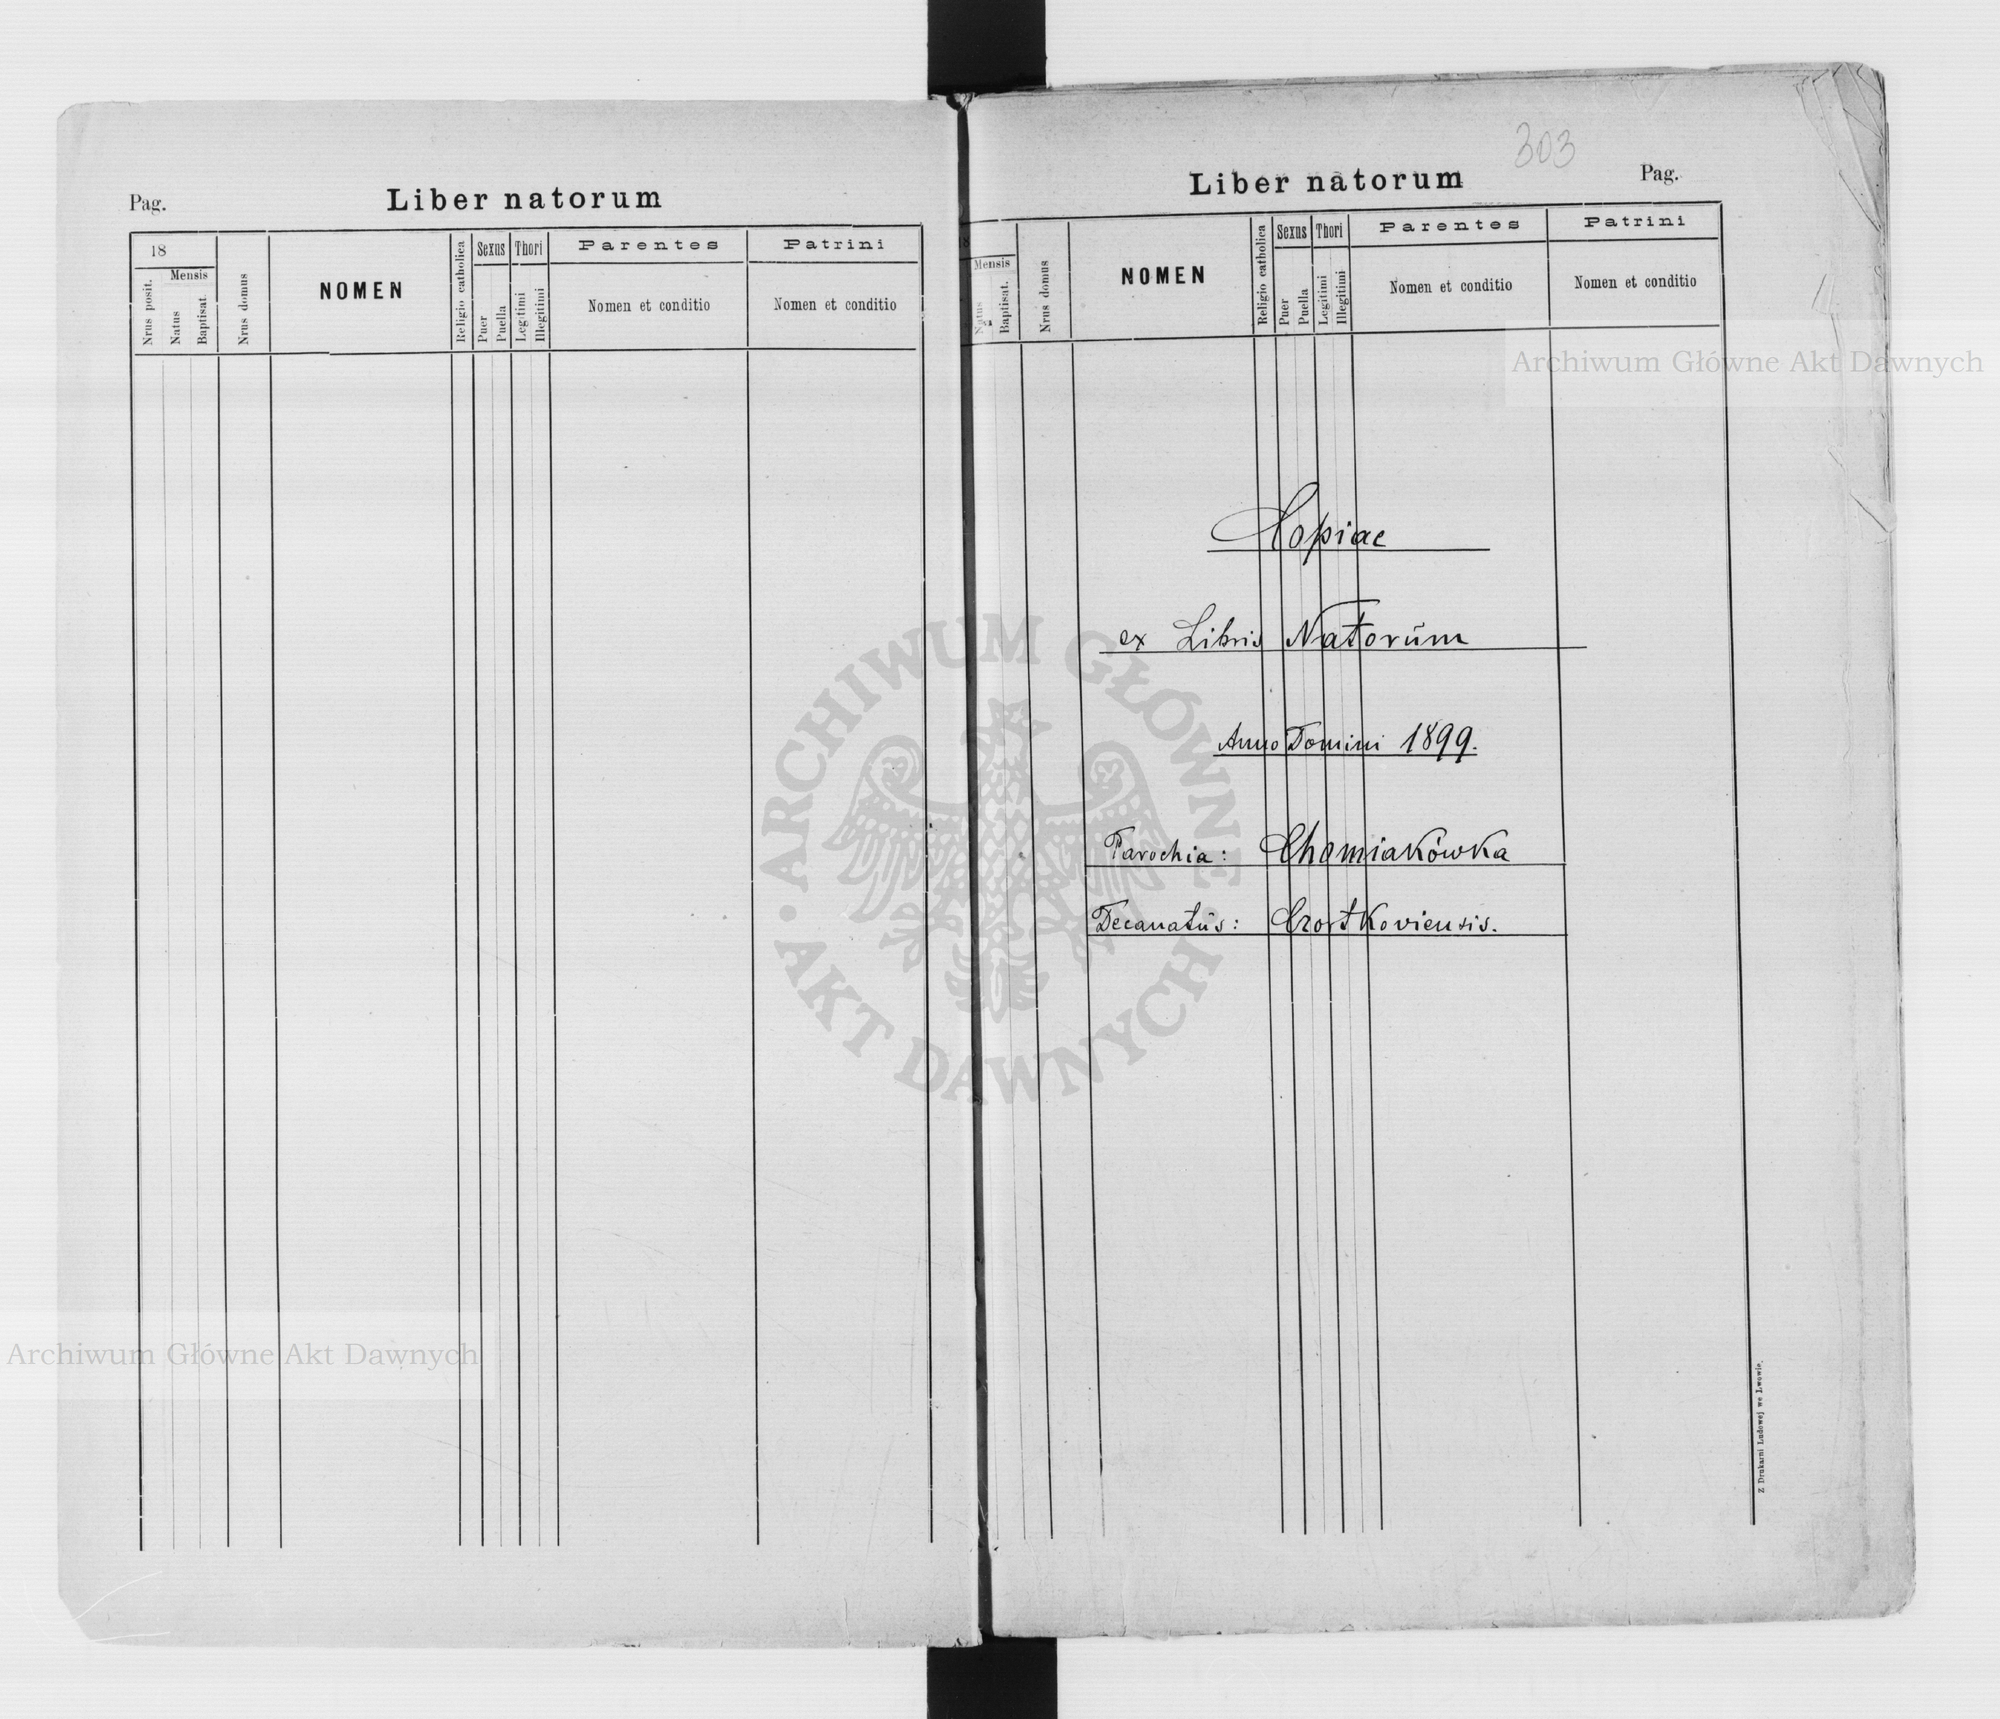 Pag.
Liber natorum
18
Mensis
Nrus posit.
Natus
Baptisat.
Nrus domus
NOMEN
Religio catholica
Sexus
Puer
Puella
Thori
Legitimi
Illegitimi
Parentes
Nomen et conditio
Patrini
Nomen et conditio
303
Liber natorum
Pag.
Mensis
Natus
Baptisat.
Nrus domus
NOMEN
Religio catholica
Sexus
Puer
Puella
Thori
Legitimi
Illegitimi
Parentes
Nomen et conditio
Patrini
Nomen et conditio
Archiwum Główne Akt Dawnych
Copiae
ex Libris Natorum
Anno Domini 1899.
Parochia: Chomiakówka
Decanatus: Czortkoviensis.
ARCHIWUM GŁÓWNE
AKT DAWNYCH
Archiwum Główne Akt Dawnych
Z Drukarni Ludowej we Lwowie.